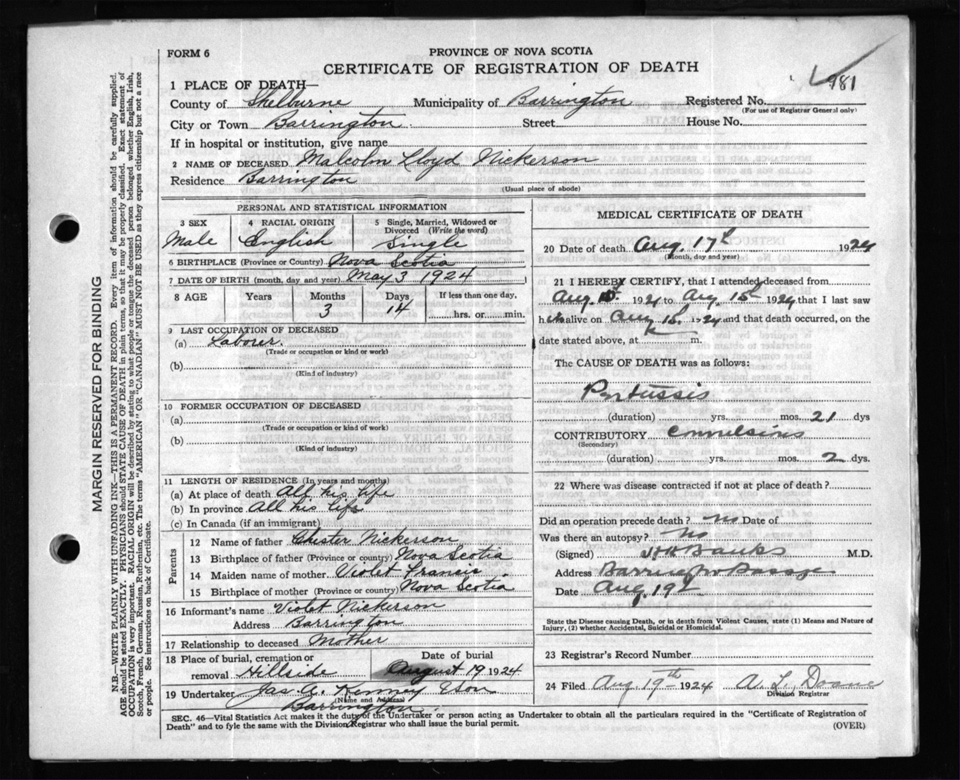 FORM 6
PROVINCE OF NOVA SCOTIA
CERTIFICATE OF REGISTRATION OF DEATH
981
1 PLACE OF DEATH—
County of Shelburne Municipality of Barrington Registered No.
(For use of Registrar General only)
City or Town Barrington. Street House No.
If in hospital or institution, give name
2 NAME OF DECEASED Malcolm Lloyd Nickerson
Residence Barrington
(Usual place of abode)
PERSONAL AND STATISTICAL INFORMATION
3 SEX 4 RACIAL ORIGIN 5 Single, Married, Widowed or Divorced (Write the word)
Male English Single
6 BIRTHPLACE (Province or Country) Nova Scotia
7 DATE OF BIRTH (month, day and year) May 3 1924
8 AGE Years Months Days If less than one day,
3 14 hrs. or min.
9 LAST OCCUPATION OF DECEASED
(a) Laborer.
(Trade or occupation or kind or work)
(b)
(Kind of industry)
10 FORMER OCCUPATION OF DECEASED
(a)
(Trade or occupation or kind of work)
(b)
(Kind of industry)
11 LENGTH OF RESIDENCE (In years and months)
(a) At place of death All his life
(b) In province All his life
(c) In Canada (if an immigrant)
Parents
12 Name of father Chester Nickerson
13 Birthplace of father (Province or country) Nova Scotia
14 Maiden name of mother Violet Francis
15 Birthplace of mother (Province or country) Nova Scotia
16 Informant's name Violet Nickerson
Address Barrington
17 Relationship to deceased Mother
18 Place of burial, cremation or removal Hillside Date of burial August 19 1924
19 Undertaker Jas. A. Kenney & Son
(Name and Address)
Barrington.
MEDICAL CERTIFICATE OF DEATH
20 Date of death Aug. 17th 1924
(Month, day and year)
21 I HEREBY CERTIFY, that I attended deceased from
Aug 1924 to Aug. 15th 1924 that I last saw
h alive on Aug 15. 1924 and that death occurred, on the
date stated above, at m.
The CAUSE OF DEATH was as follows:
Pertussis
(duration) yrs. mos. 21 dys
CONTRIBUTORY Convulsions
(Secondary)
(duration) yrs. mos. 2 dys.
22 Where was disease contracted if not at place of death?
Did an operation precede death? No Date of
Was there an autopsy? No
(Signed) Banks M.D.
Address Barrington Passage
Date Aug. 19th
State the Disease causing Death, or in death from Violent Causes, state (1) Means and Nature of
Injury, (2) whether Accidental, Suicidal or Homicidal.
23 Registrar's Record Number
24 Filed Aug. 19th 1924 A. L. Doane
Division Registrar
SEC. 46—Vital Statistics Act makes it the duty of the Undertaker or person acting as Undertaker to obtain all the particulars required in the "Certificate of Registration of
Death" and to fyle the same with the Division Registrar who shall issue the burial permit.
(OVER)
MARGIN RESERVED FOR BINDING
N.B.—WRITE PLAINLY WITH UNFADING INK—THIS IS A PERMANENT RECORD. Every item of information should be carefully supplied.
AGE should be stated EXACTLY. PHYSICIANS should STATE CAUSE OF DEATH in plain terms, so that it may be properly classified. Exact statement of
OCCUPATION is very important. RACIAL ORIGIN will be described by stating to what people or tongue the deceased person belonged whether English, Irish,
Scotch, French, German, Russian, Ruthenian, etc. The terms "AMERICAN" OR "CANADIAN" MUST NOT BE USED as they express citizenship but not a race
or people. See instructions on back of Certificate.